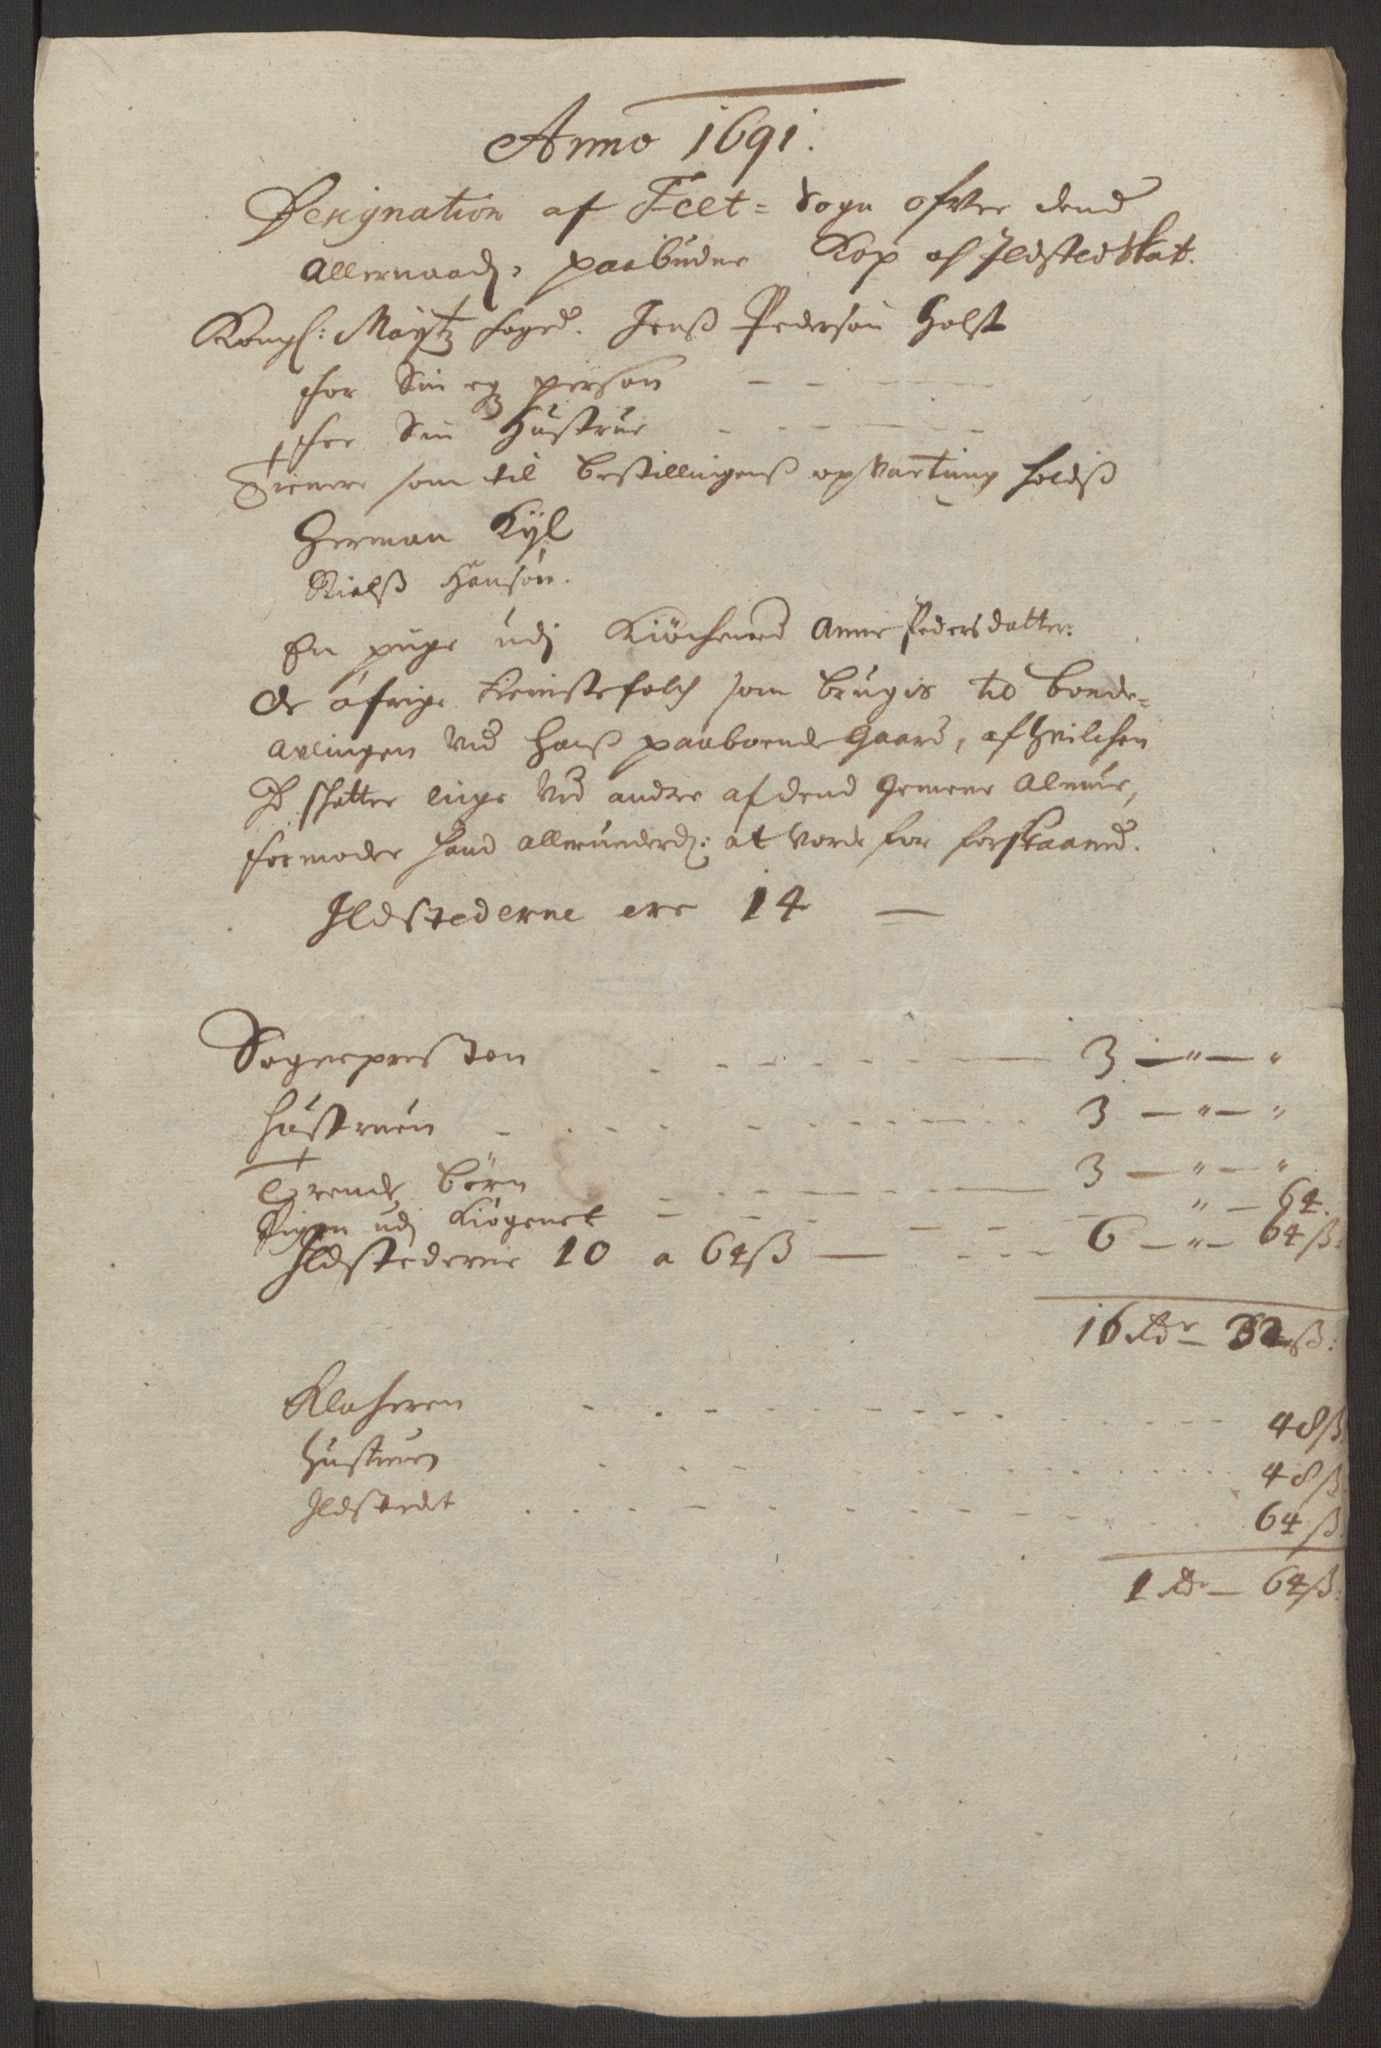 Anno 1691.
Designation af Feet= Sogn ofver dend
Allernaad: paabudne Kop og Ildsted Skat.
Kongl: Maÿtz foged. Jenß Pedersøn Holst
for Sin eg person
for Sin Hustrue
Tienere som til bestillingenß opvartning holdß
Herman Kÿl
Nielß Hansøn.
En pige udj Kiöchened Anne Pedersdatter:
de öfrige tienistefolch som brugis til bonde=
avlingen ved hanß paaboende Gaard, af hvilchen
d schatter lige ved andre af dend gemene Almue,
formoder hand allerunderd: at vorde for forskaaned.
Ildstederne ere 14 —
Sognepresten 3 — " — "
Hustruen 3 — " — "
Trende börn 3 — " — "
Pigen udj Kiögenet " — 64.
Ildstederne 10 a 64ß — 6 — " — 64ß:
16 Rdr — 32ß:
Klocheren 48ß
Hustruen 48ß
Ildstedet 64ß.
1 Rdr — 64ß: